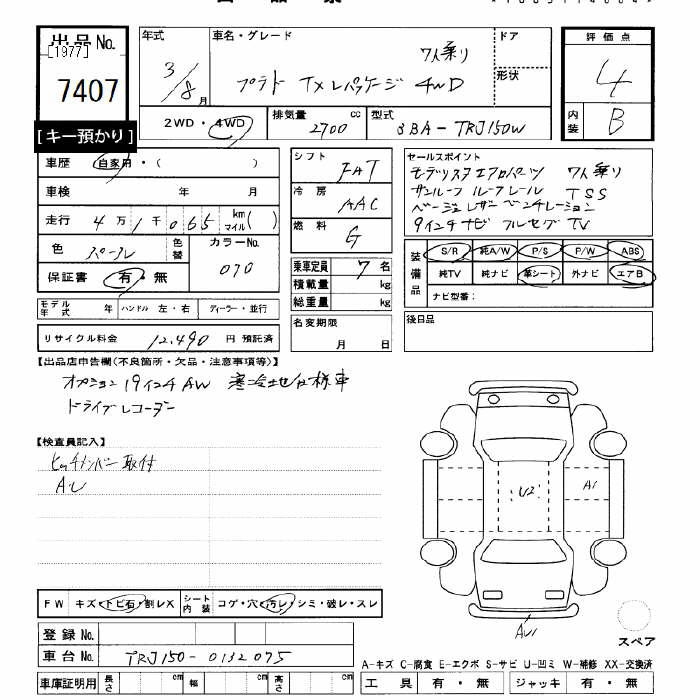 出品No.
[1977]
7407
[キー預かり]
年式
3/8月
車名・グレード
7人乗り
プラド TXLパッケージ 4WD
ドア
形状
評価点
4
内装
B
2WD・4WD
排気量
2700 cc
型式
3BA-TRJ150W
車歴
自家用・( )
車検 年 月
走行 4万1千065 km マイル( )
色
パール
色替
カラーNo.
070
保証書 有・無
シフト
FAT
冷房
AAC
燃料
G
乗車定員 7名
積載量 kg
総重量 kg
名変期限
月 日
セールスポイント
モデリスタエアロパーツ 7人乗り
サンルーフ ルーフレール TSS
ベージュレザー ベンチレーション
9インチナビ フルセグTV
装備品
S/R 純A/W P/S P/W ABS
純TV 純ナビ 革シート 外ナビ エアB
ナビ型番:
後日品
モデル年式 年 ハンドル 左・右 ディーラー・並行
リサイクル料金 12,490 円 預託済
【出品店申告欄(不良箇所・欠品・注意事項等)】
オプション19インチAW 寒冷地仕様車
ドライブレコーダー
【検査員記入】
ヒッチメンバー取付
AU
U2
A1
AU1
スペア
FW キズ・トビ石・割レX
シート内装 コゲ・穴・汚レ・シミ・破レ・スレ
登録No.
車台No. TRJ150-0132075
車庫証明用 長さ cm 幅 cm 高さ cm
A-キズ C-腐食 E-エクボ S-サビ U-凹ミ W-補修 XX-交換済
工具 有・無 ジャッキ 有・無